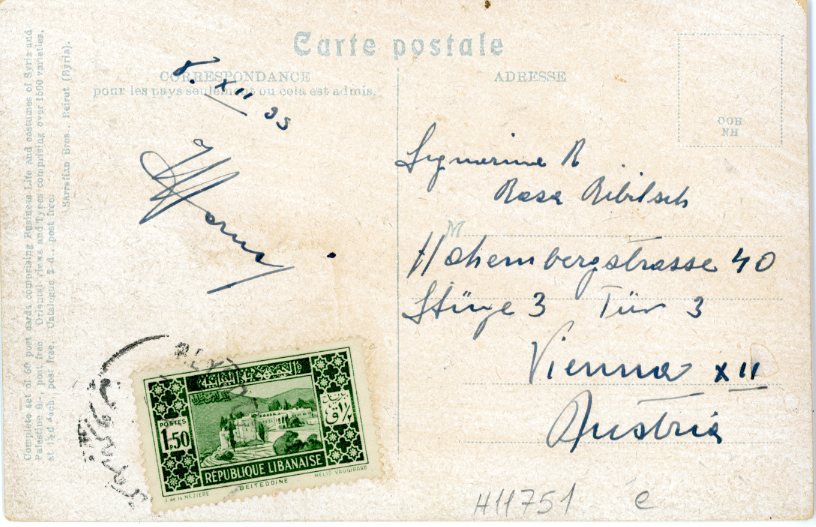 Carte postale
CORRESPONDANCE
pour les pays seulement ou cela est admis.
ADRESSE
Complete set of 60 post cards comprising Business Life and costumes of Syria and
Palestine post free. Oriental views and Types comprising over 1500 varieties,
at each, post free. Catalogue 2 d. post free.
Sarrafian Bros. Beirut (Syria).
8. XII 35
Signorina R
Rosa Ribitsch
M
Hohembergstrasse 40
Stiuge 3 Tür 3
Vienna XII
Austria
POSTES
1.50
RÉPUBLIQUE LIBANAISE
BEITEDDINE
J. DE LA NÉZIÈRE
HELIO VAUGIRARD
H11751 e